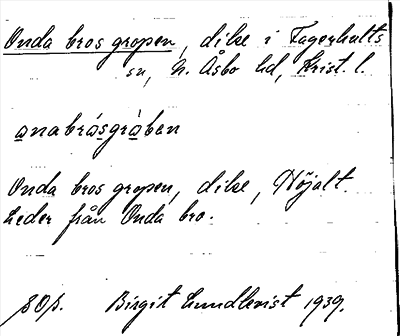 Onda bros gropen, dike i Fagerhults
sn, N. Åsbo hd, Krist. l.
anabrósgrǻben
Onda bros gropen, dike, Höjalt.
Leder från Onda bro.
Birgit Lundkvist 1939.